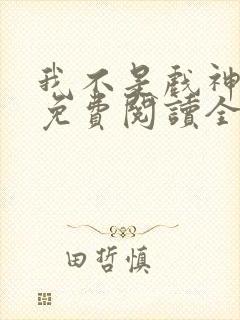 我不是戲神
免費閱讀全
田哲慎